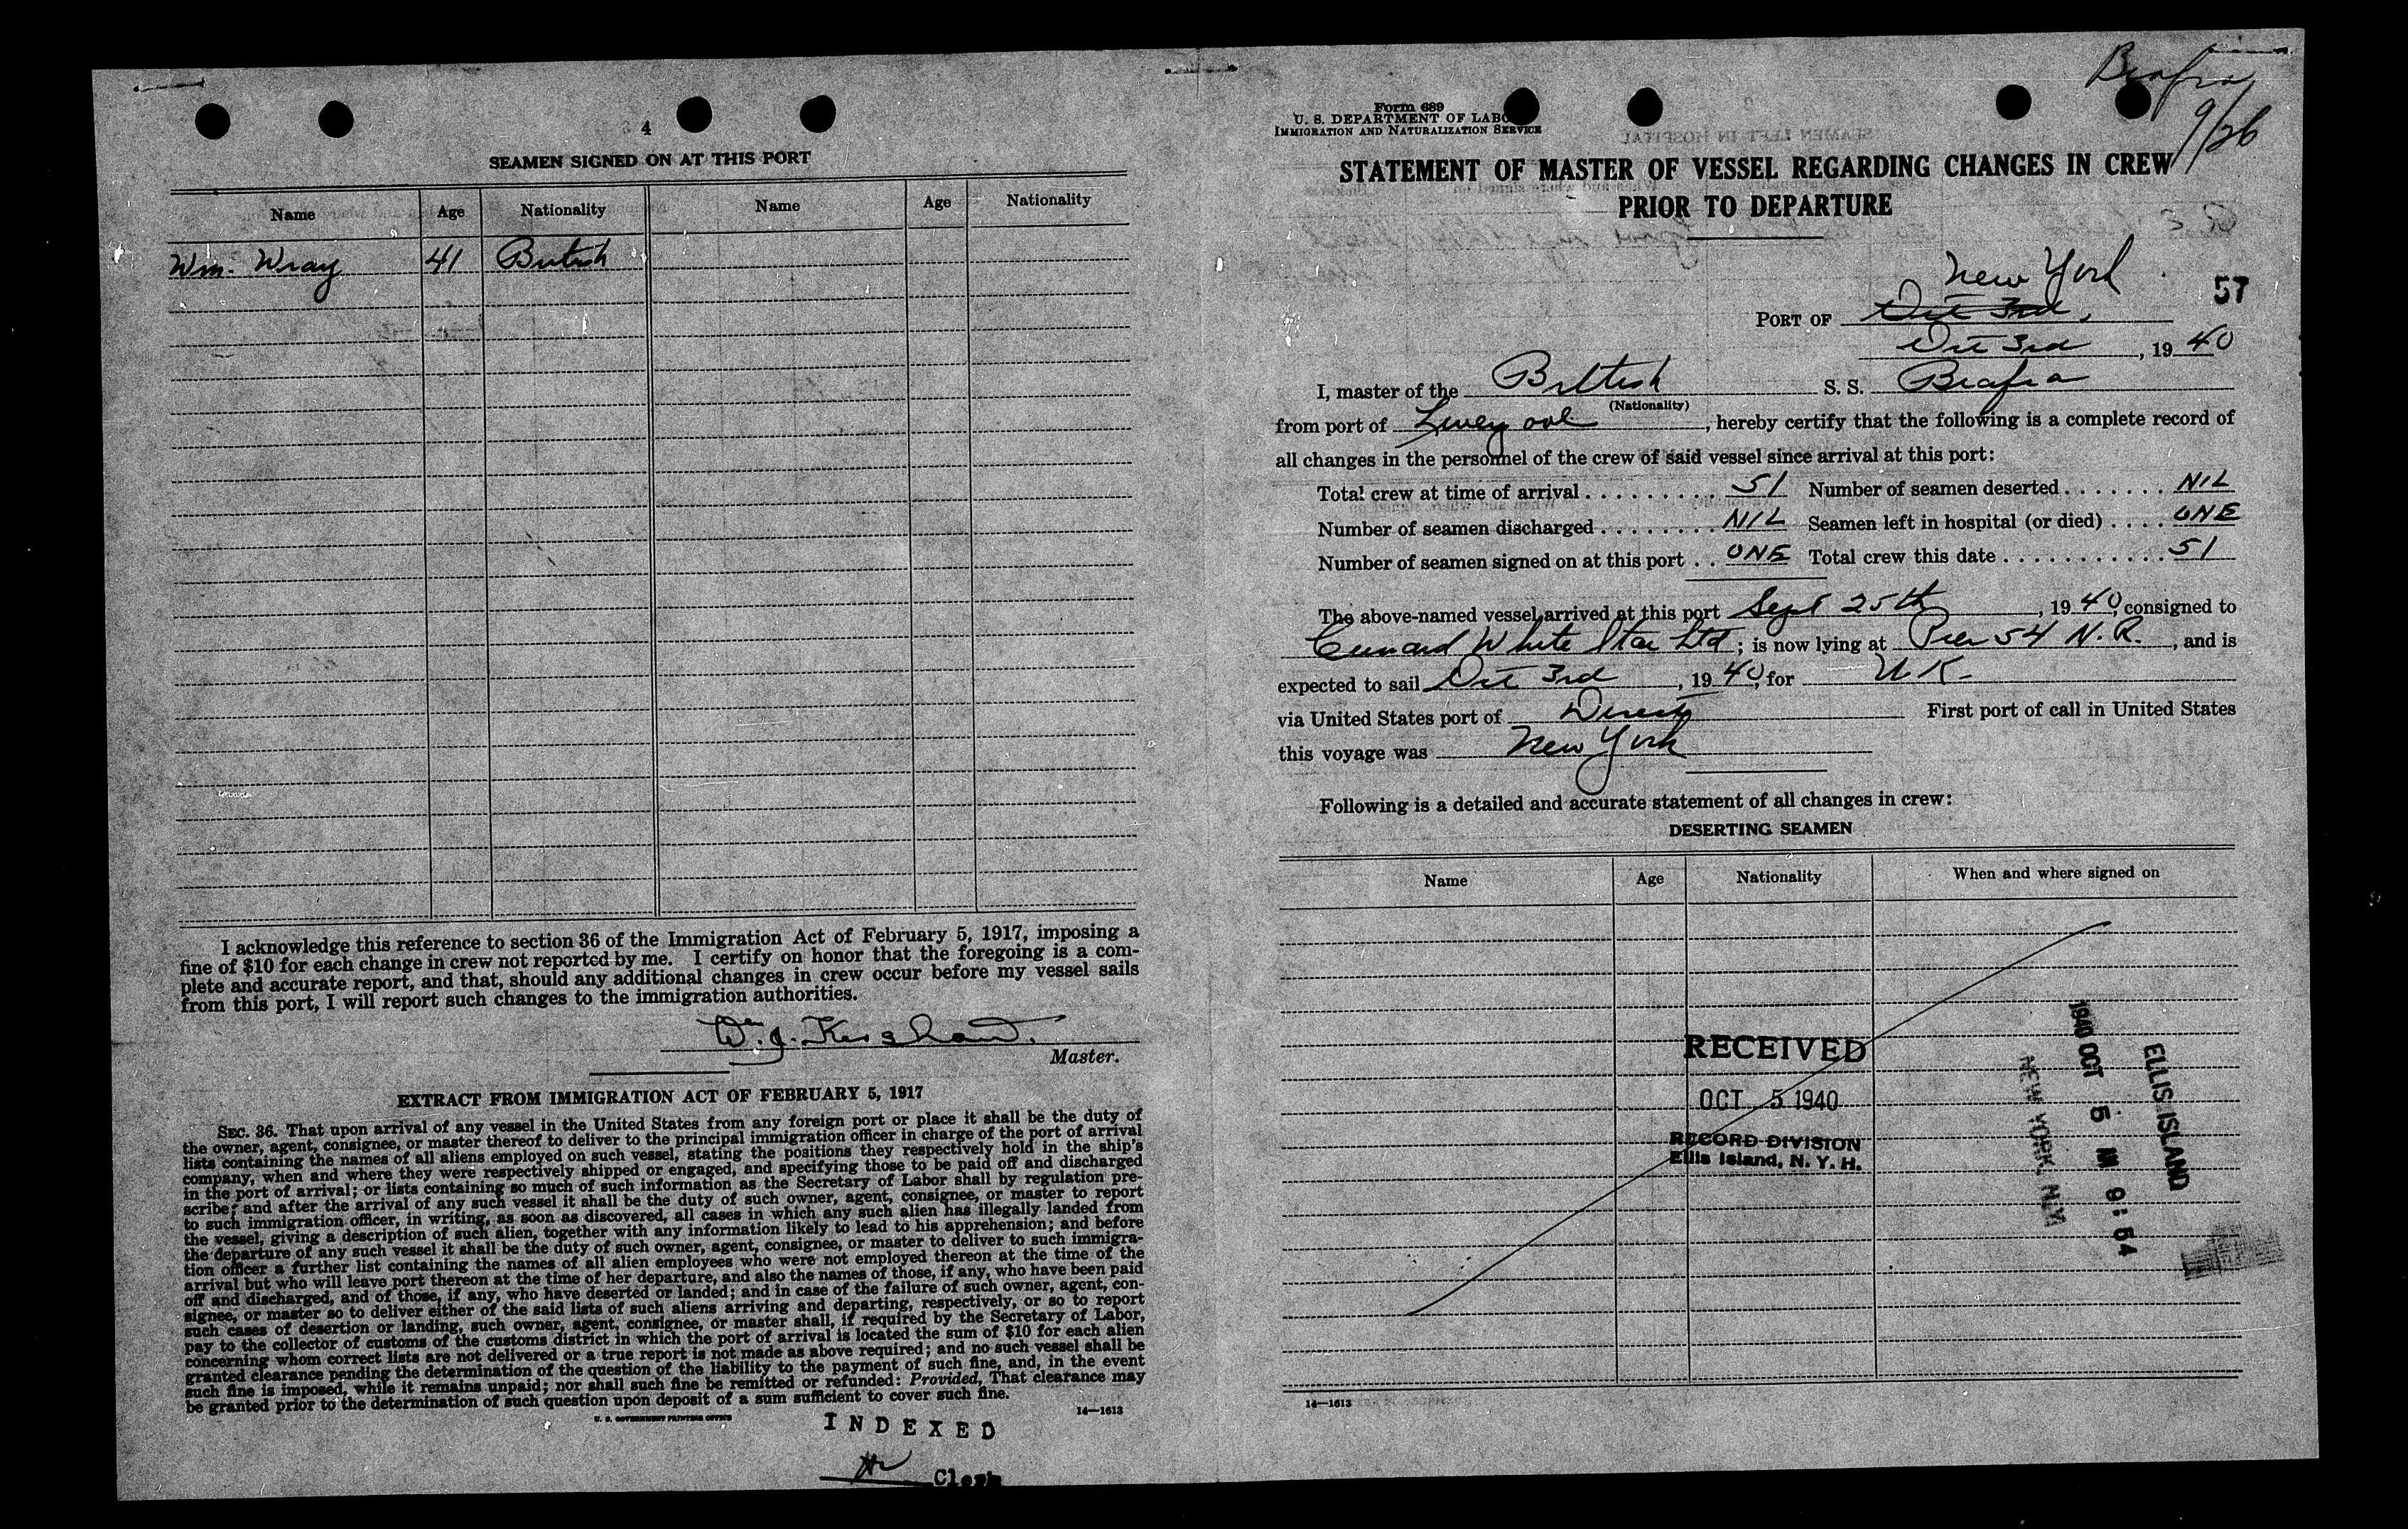 4
SEAMEN SIGNED ON AT THIS PORT
Name Age Nationality Name Age Nationality
Wm. Wray 41 British
I acknowledge this reference to section 36 of the Immigration Act of February 5, 1917, imposing a
fine of $10 for each change in crew not reported by me. I certify on honor that the foregoing is a com-
plete and accurate report, and that, should any additional changes in crew occur before my vessel sails
from this port, I will report such changes to the immigration authorities.
Wm. J. Kershaw.
Master.
EXTRACT FROM IMMIGRATION ACT OF FEBRUARY 5, 1917
SEC. 36. That upon arrival of any vessel in the United States from any foreign port or place it shall be the duty of
the owner, agent, consignee, or master thereof to deliver to the principal immigration officer in charge of the port of arrival
lists containing the names of all aliens employed on such vessel, stating the positions they respectively hold in the ship's
company, when and where they were respectively shipped or engaged, and specifying those to be paid off and discharged
in the port of arrival; or lists containing so much of such information as the Secretary of Labor shall by regulation pre-
scribe; and after the arrival of any such vessel it shall be the duty of such owner, agent, consignee, or master to report
to such immigration officer, in writing, as soon as discovered, all cases in which any such alien has illegally landed from
the vessel, giving a description of such alien, together with any information likely to lead to his apprehension; and before
the departure of any such vessel it shall be the duty of such owner, agent, consignee, or master to deliver to such immigra-
tion officer a further list containing the names of all alien employees who were not employed thereon at the time of the
arrival but who will leave port thereon at the time of her departure, and also the names of those, if any, who have been paid
off and discharged, and of those, if any, who have deserted or landed; and in case of the failure of such owner, agent, con-
signee, or master so to deliver either of the said lists of such aliens arriving and departing, respectively, or so to report
such cases of desertion or landing, such owner, agent, consignee, or master shall, if required by the Secretary of Labor,
pay to the collector of customs of the customs district in which the port of arrival is located the sum of $10 for each alien
concerning whom correct lists are not delivered or a true report is not made as above required; and no such vessel shall be
granted clearance pending the determination of the question of the liability to the payment of such fine, and, in the event
such fine is imposed, while it remains unpaid; nor shall such fine be remitted or refunded: Provided, That clearance may
be granted prior to the determination of such question upon deposit of a sum sufficient to cover such fine.
U. S. GOVERNMENT PRINTING OFFICE 14—1613
INDEXED
Clerk
Biafra
9/26
Form 689
U. S. DEPARTMENT OF LABO
IMMIGRATION AND NATURALIZATION SERVICE
STATEMENT OF MASTER OF VESSEL REGARDING CHANGES IN CREW
PRIOR TO DEPARTURE
New York
57
PORT OF Oct 3rd,
Oct 3rd, 1940
I, master of the British S. S. Biafra
(Nationality)
from port of Liverpool, hereby certify that the following is a complete record of
all changes in the personnel of the crew of said vessel since arrival at this port:
Total crew at time of arrival . . . . . . . . . 51 Number of seamen deserted . . . . . . . NIL
Number of seamen discharged . . . . . . . . NIL Seamen left in hospital (or died) . . . . ONE
Number of seamen signed on at this port . . ONE Total crew this date . . . . . . . . . . . . 51
The above-named vessel arrived at this port Sept 25th, 1940, consigned to
Cunard White Star Ltd; is now lying at Pier 54 N. R., and is
expected to sail Oct 3rd, 1940, for UK.
via United States port of Direct First port of call in United States
this voyage was New York
Following is a detailed and accurate statement of all changes in crew:
DESERTING SEAMEN
Name Age Nationality When and where signed on
RECEIVED
OCT 5 1940
RECORD DIVISION
Ellis Island, N. Y. H.
ELLIS ISLAND
1940 OCT 5 AM 9:54
NEW YORK, N.Y.
14—1613